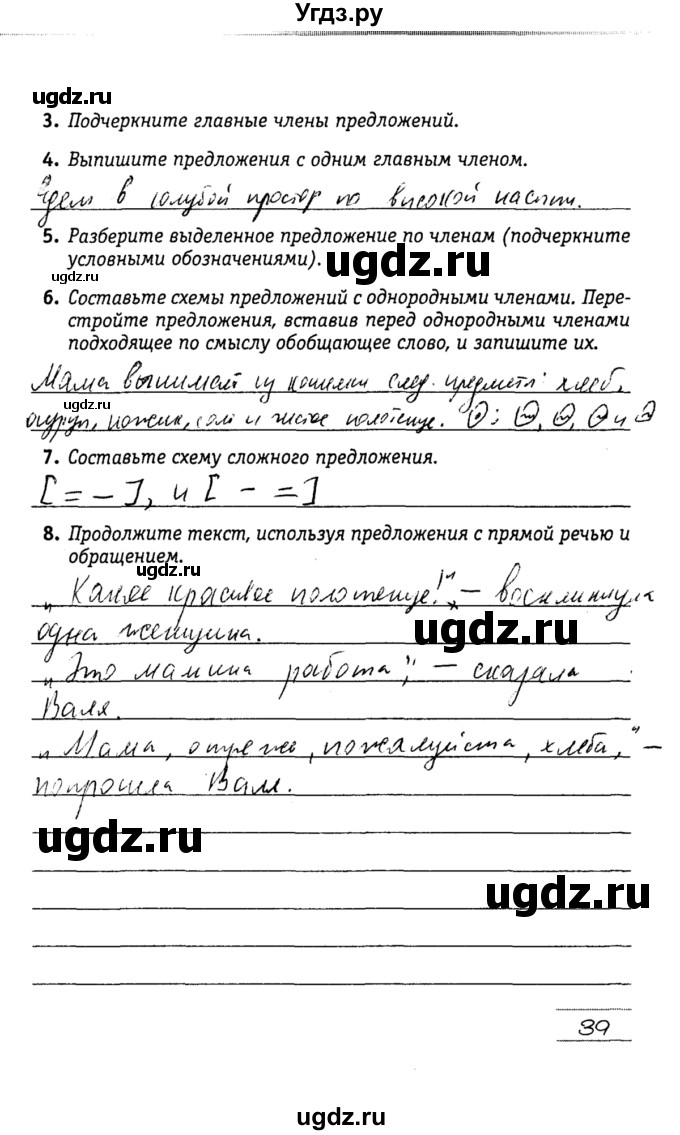 Угдз.ру
ugdz.ru
3. Подчеркните главные члены предложений.
4. Выпишите предложения с одним главным членом.
Едем в голубой простор по высокой насыпи.
5. Разберите выделенное предложение по членам (подчеркните
условными обозначениями).
ugdz.ru
ugdz.ru
6. Составьте схемы предложений с однородными членами. Пере-
стройте предложения, вставив перед однородными членами
подходящее по смыслу обобщающее слово, и запишите их.
Мама вынимает из кошелки след. предметы: хлеб,
ugdz.ru
огурцы, ножик, соль и чистое полотенце. : , , и
7. Составьте схему сложного предложения.
[= –], и [ – =]
8. Продолжите текст, используя предложения с прямой речью и
обращением.
ugdz.ru
„Какое красивое полотенце!" – воскликнула
ugdz.ru
одна женщина.
„Это мамина работа", – сказала
Валя.
„Мама, отрежь, пожалуйста, хлеба," –
попросила Валя.
ugdz.ru
ugdz.ru
39
ugdz.ru